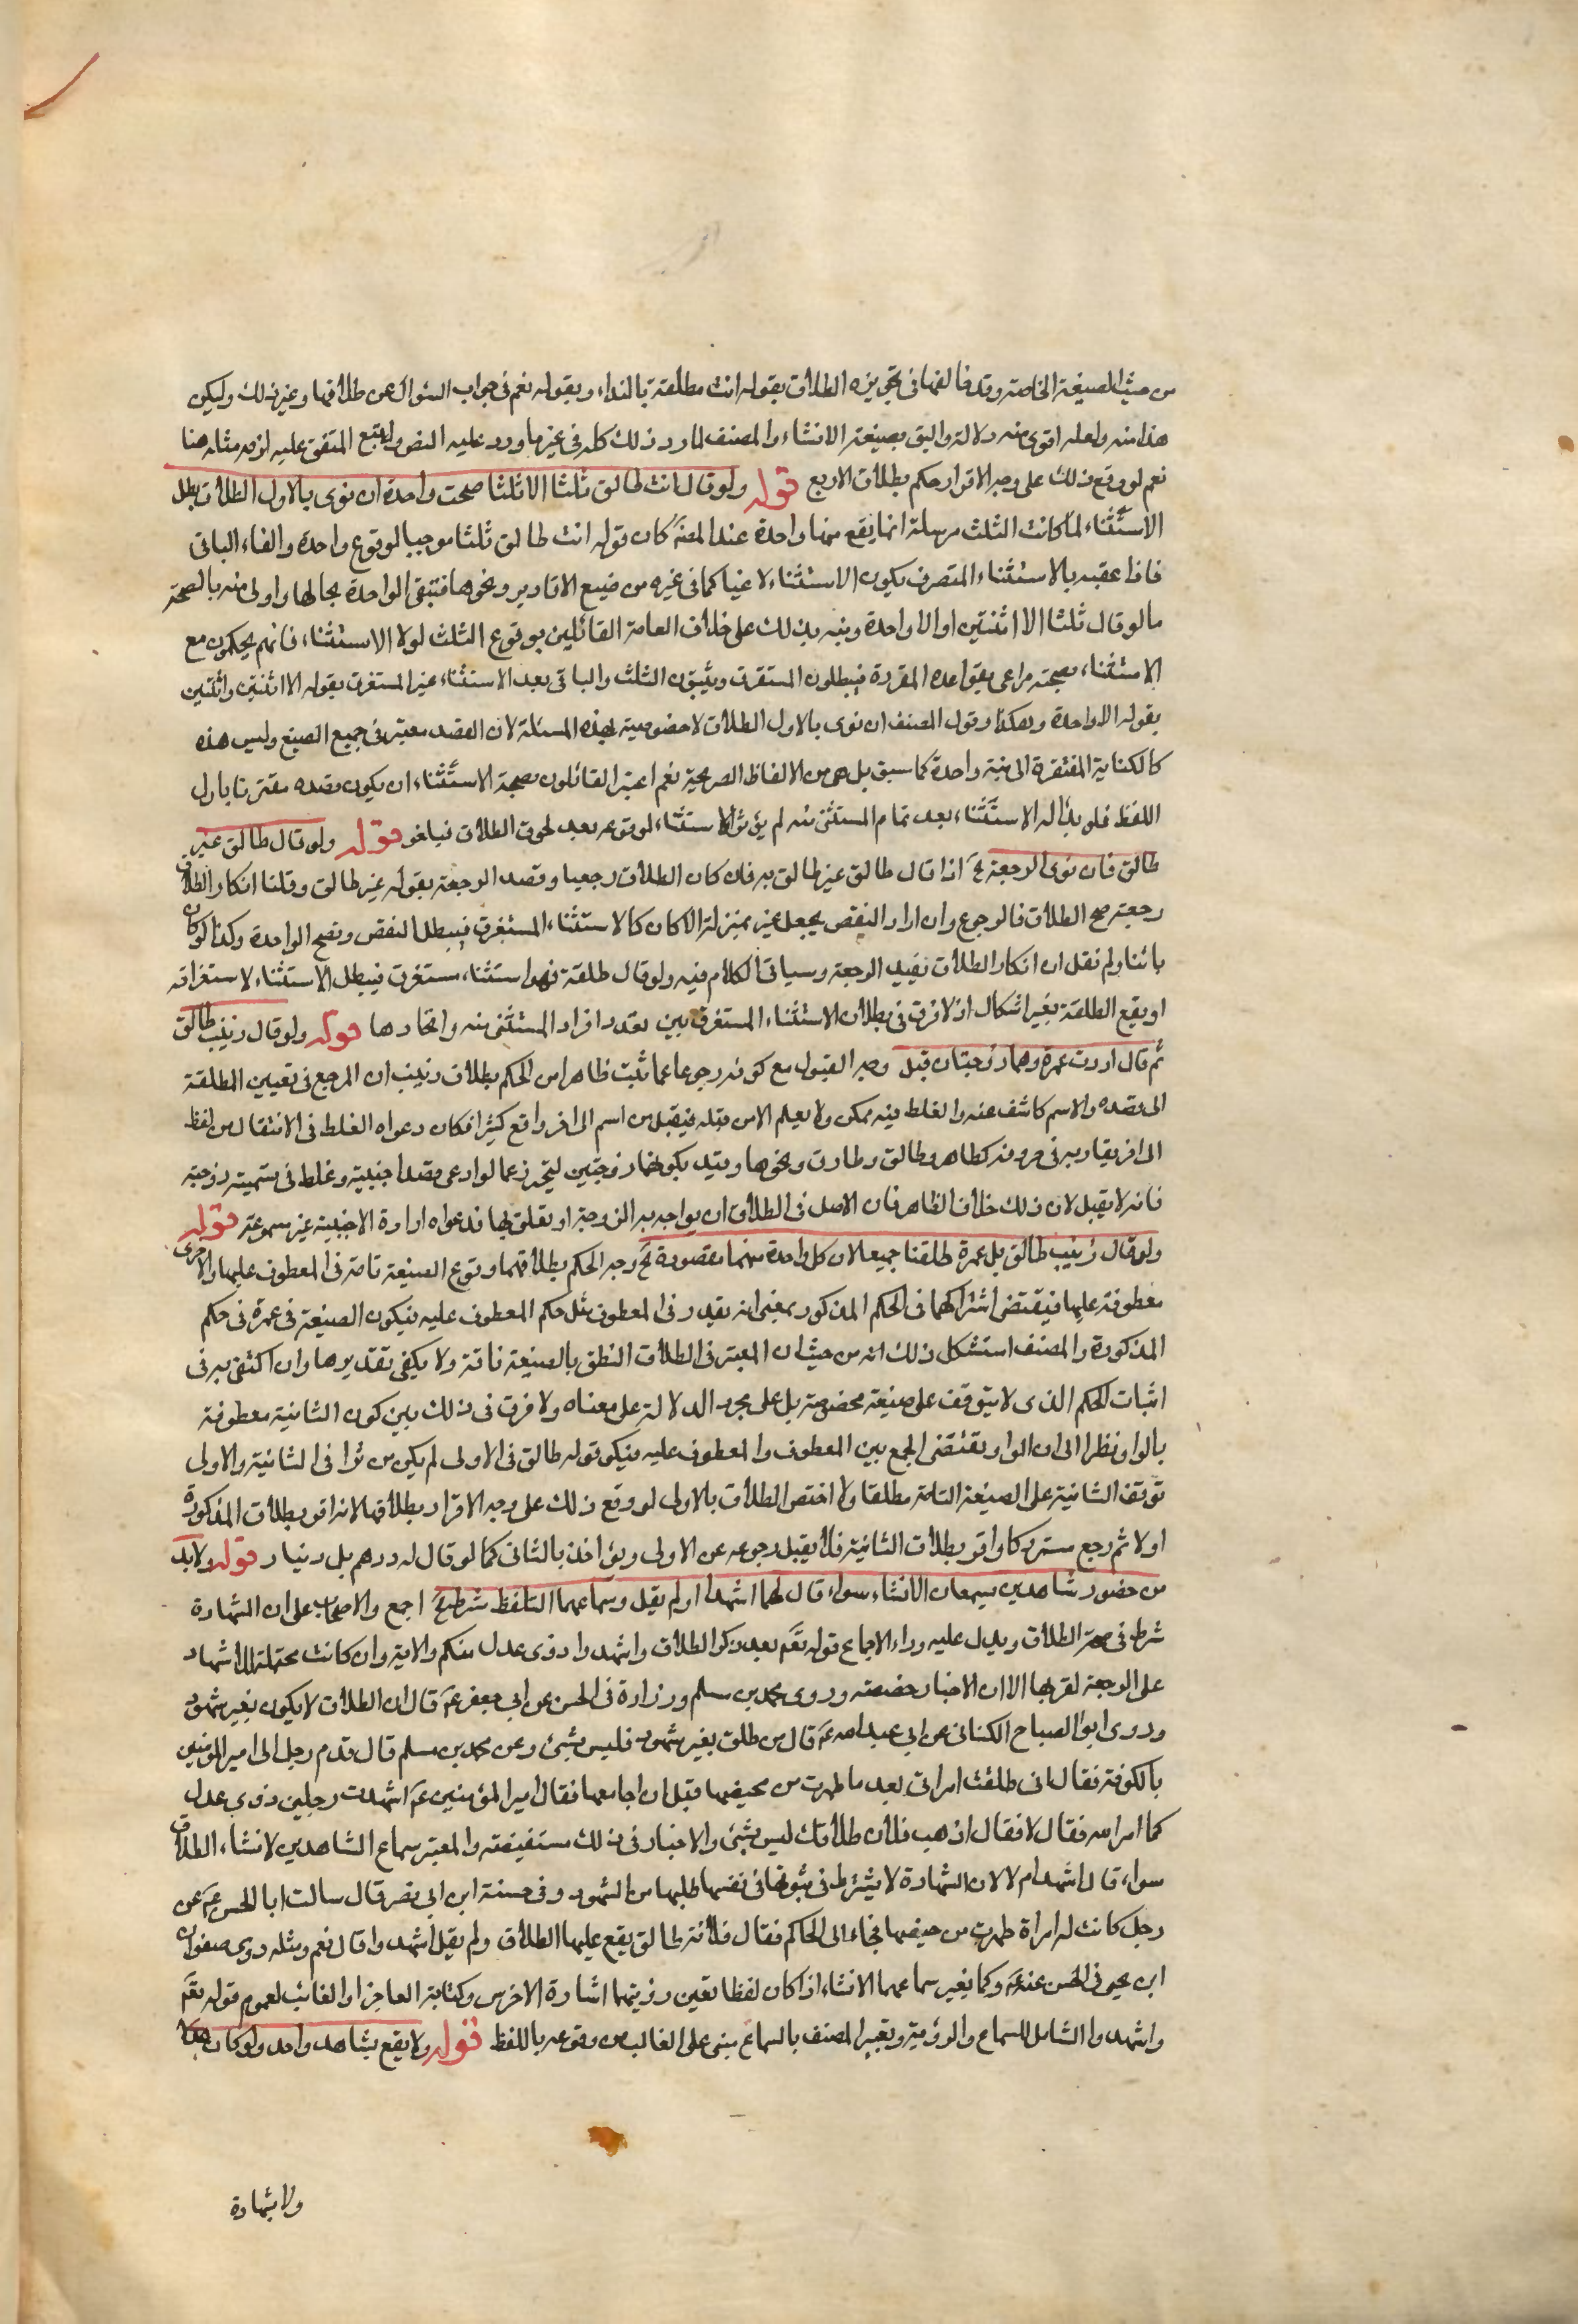 من حيث الصيغة الخاصة وقد خالفها في تجويزه الطلاق بقوله انت مطلقة بالنداء وبقوله نعم في جواب السئوال عن طلاقها وغير ذلك وليكن
هذا منه ولعله اقوى منه دلالة واليق بصيغة الانشاء والمصنف لما رد ذلك كله في غير ما ورد عليه النص واتبع المتفق عليه لزمه مثله هنا
نعم لو وقع ذلك على وجه الاقرار حكم بطلاق الاربع قوله ولو قال انت طالق ثلثا الا ثلثا صحت واحدة ان نوى بالاول الطلاق بطل
الاستثناء لما كانت الثلث مرسلة انما يقع منها واحدة عند المصنَ كان قوله انت طالق ثلثا موجبا لوقوع واحدة والغاء الباقي
فاذا عقبه بالاستثناء المتصرف يكون الاستثناء لاغيا كما في غيره من صيغ الاقارير ونحوها فتبقى الواحدة بحالها واولى منه بالصحة
ما لو قال ثلثا الا اثنتين او الا واحدة ونبه بذلك على خلاف العامة القائلين بوقوع الثلث لولا الاستثناء فانهم يحكمون مع
الاستثناء بصحته مراعى بقواعده المقررة فيبطلون المستغرق ويثبتون الثلث والباقي بعد الاستثناء غير المستغرق بقوله الا اثنتين واثنتين
بقوله الا واحدة وهكذا وقول المصنف ان نوى بالاول الطلاق لا خصوصية لهذه المسئلة لان القصد معتبر في جميع الصيغ وليس هذه
كالكناية المفتقرة الى نية واحدة كما سبق بل هي من الالفاظ الصريحة نعم اعتبر القائلون بصحة الاستثناء ان يكون قصده مقترنا باول
اللفظ فلو بدا له الاستثناء بعد تمام المستثنى منه لم يؤثر الاستثناء لوقوعه بعد لحوق الطلاق فيلغو قوله ولو قال طالق غير
طالق فان نوى الرجعة الخَ اذا قال طالق غير طالق به فان كان الطلاق رجعيا وقصد الرجعة بقوله غير طالق وقلنا انكار الطلاق
رجعة صح الطلاق فالرجوع وان اراد النقض يجعل غير بمنزلة الا كان كالاستثناء المستغرق فيبطل النقض وتصح الواحدة وكذا لو كان
بائنا ولم نقل ان انكار الطلاق يفيد الرجعة وسياتي الكلام فيه ولو قال طلقة فهو استثناء مستغرق فيبطل الاستثناء لاستغراقه
او يقع الطلقة بغير اشكال اذ لا فرق في بطلان الاستثناء المستغرق بين تعدد افراد المستثنى منه واتحادها قوله ولو قال زينب طالق
ثم قال اردت عمرة وهما زوجتان قبل وجه القبول مع كونه رجوعا عما ثبت ظاهرا من الحكم بطلاق زينب ان المرجع في تعيين المطلقة
الى قصده والاسم كاشف عنه والغلط فيه ممكن ولا يعلم الا من قبله فيقبل من اسم الى اخر واقع كثيرا فكان دعواه الغلط في الانتقال من لفظ
الى اخر يقاربه في حروفه كطاهر وطالق وطارق ونحوها وقيد بكونهما زوجتين ليتحرز عما لو ادعى قصد اجنبية وغلط في تسمية زوجته
فانه لا يقبل لان ذلك خلاف الظاهر فان الاصل في الطلاق ان يواجه به الزوجة او يعلق بها فدعواه ارادة الاجنبية غير مسموعة قوله
ولو قال زينب طالق بل عمرة طلقتا جميعا لان كل واحدة منهما مقصودة الخَ وجه الحكم بطلاقهما وقوع الصيغة تامة في المعطوف عليها والاخرى
معطوفة عليها فيقتضي اشتراكهما في الحكم المذكور بمعنى انه يقدر في المعطوف مثل حكم المعطوف عليه فيكون الصيغة في عمرة في حكم
المذكورة والمصنف استشكل ذلك انه من حيث ان المعتبر في الطلاق النطق بالصيغة تامة ولا يكفي تقديرها وان اكتفي به في
اثبات الحكم الذي لا يتوقف على صيغة مخصوصة بل على مجرد الدلالة على معناه ولا فرق في ذلك بين كون الثانية معطوفة
بالواو نظرا الى ان الواو تقتضي الجمع بين المعطوف والمعطوف عليه فيكو قوله طالق في الاولى لم يكن مؤثرا في الثانية والاولى
توقف الثانية على الصيغة التامة مطلقا ولا اختص الطلاق بالاولى لو وقع ذلك على وجه الاقرار بطلاقهما لانه اقر بطلاق المذكورة
اولا ثم رجع مستدركا واقر بطلاق الثانية فلا يقبل رجوعه عن الاولى ويؤاخذ بالثاني كما لو قال له درهم بل دينار قوله ولا بد
من حضور شاهدين يسمعان الانشاء سواء قال لهما اشهدا او لم يقل وسماعهما التلفظ شرط الخَ اجمع والاصحاب على ان الشهادة
شرط في صحة الطلاق ويدل عليه وراء الاجماع قوله تعَ بعد ذكر الطلاق واشهدوا ذوى عدل منكم والاية وان كانت محتملة للاشهاد
على الرجعة لقربها الا ان الاخبار خصصته وروى محمد بن مسلم وزرارة في الحسن عن ابي جعفر عَ قال ان الطلاق لا يكون بغير شهود
وروى ابو الصباح الكناني عن ابي عبد الله عَ قال من طلق بغير شهود فليس بشئ وعن محمد بن مسلم قال قدم رجل الى امير المؤمنين
بالكوفة فقال اني طلقت امراتي بعد ما طهرت من محيضها قبل ان اجامعها فقال امير المؤمنين عَ اشهدت رجلين ذوى عدل
كما امر الله فقال لا فقال اذهب فلان طلاقك ليس بشئ والاخبار في ذلك مستفيضة والمعتبر سماع الشاهدين لانشاء الطلاق
سواء قال اشهد ام لا لان الشهادة لا يشترط في ثبوتها في نفسها طلبها من الشهود وفي حسنة ابن ابي نصر قال سالت ابا الحسن عَ عن
رجل كانت له امراة طهرت من حيضها فجاء الى الحاكم فقال فلانة طالق يقع عليها الطلاق ولم يقل اشهدوا قال نعم ومثله روى صفوان
ابن يحيى في الحسن عنه عَ وكما يعتبر سماعهما الانشاء اذا كان لفظا تعين رؤيتهما اشارة الاخرس وكتابة العاجز او الغائب لعموم قوله تعَ
واشهدوا الشامل للسماع والرؤية وتعبير المصنف بالسماع مبني على الغالب من وقوعه باللفظ قوله ولا يقع بشاهد واحد ولو كان عدلا
ولا بشهادة